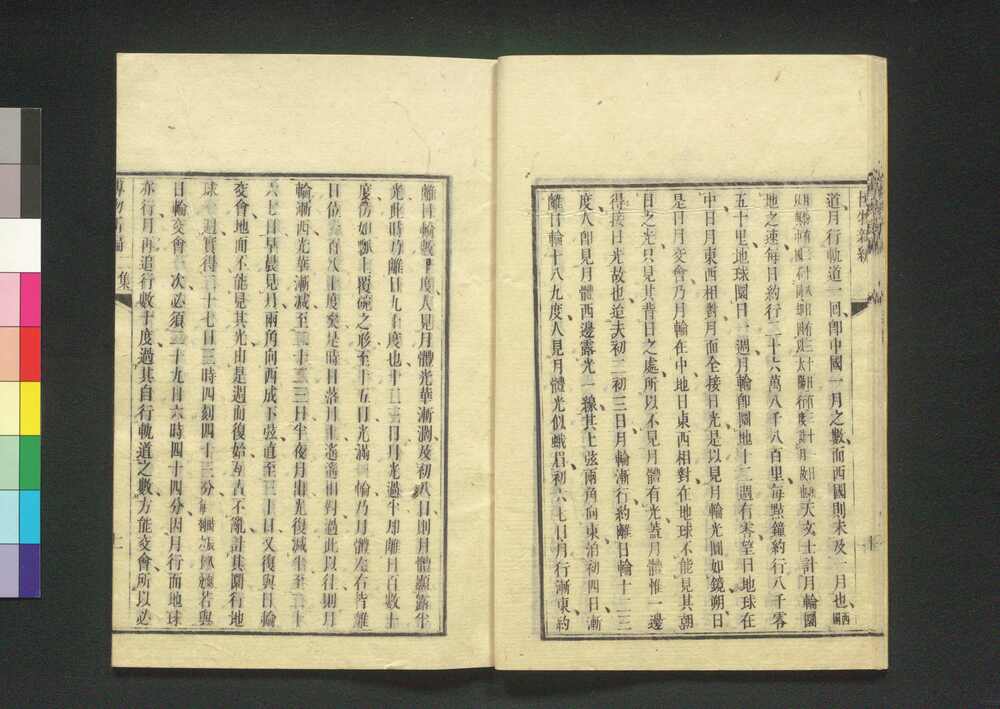 道月行軌道一回卽中國一月之數而西國則未及一月也西國
地之速每日約行二十六萬八千八百里每點鐘約行八千零
五十里地球圜日一週月輪卽圜地十三週有零望日地球在
中日月東西相對月面全接日光是以見月輪光圓如鏡朔日
是日月交會乃月輪在中地日東西相對在地球不能見其朝
日之光只見其昔日之處所以不見月體有光蓋月體惟一邊
得接日光故也迨夫初二初三日月輪漸行約離日輪十二三
度人卽見月體西邊露光一線其上弦兩角向東泊初四日漸
離日輪十八九度人見月體光似蛾眉初六七日月行漸東約
離日輪數十度人見月體光華漸濶及初八日則月體顯露半
光此時乃離日九十度也十二三日月光過半卽離月百數十
度仿如甌上覆碗之形至十五日光滿輪乃月體左右皆離
日位百八十度矣是時日落月上遙遙相對過此以往則月
輪漸西光華漸減至二十二三日半夜月出光復減半至二十
六七日早晨見月兩角向西成下弦直至三十日又復與日輪
交會地面不能見其光由是週而復始亙古不亂計其圜行地
球一週實得二十七日三時四刻四十三分若與
日輪交會一次必須二十九日六時四十四分因月行而地球
亦行月再追行數十度過其自行軌道之數方能交會所以必
博物新編
二集